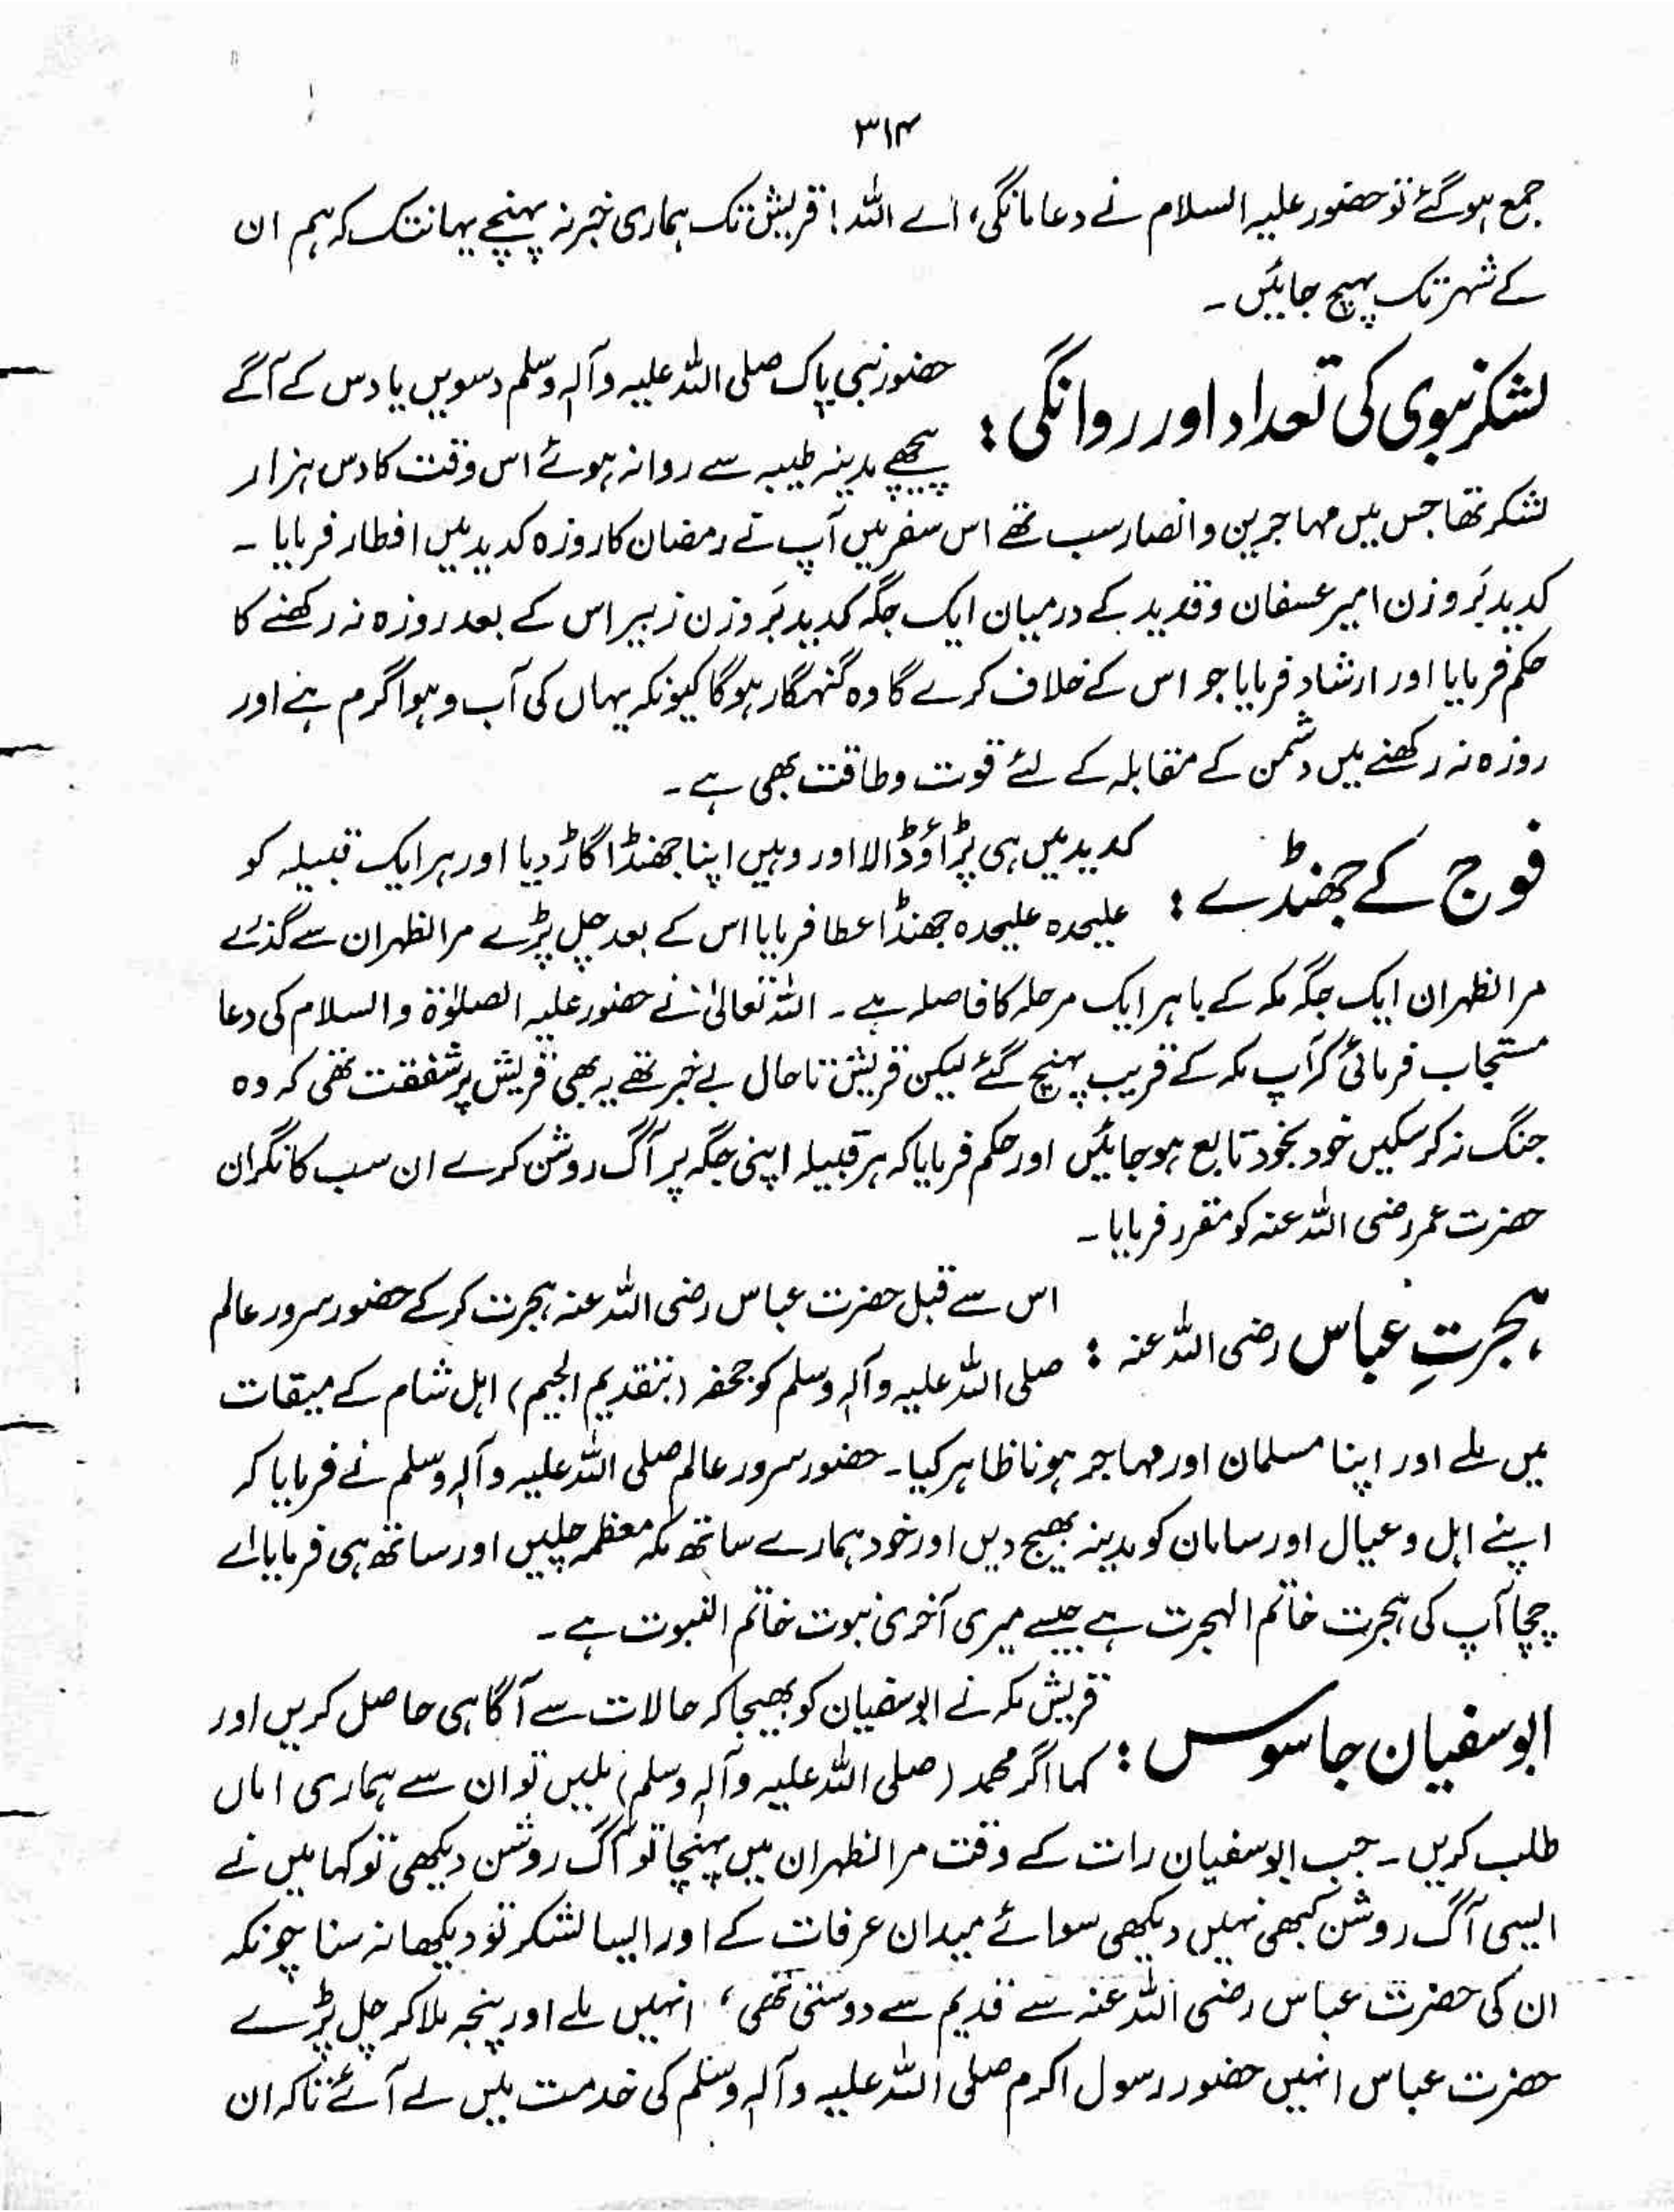 ۳۱۴
جمع ہوگئے تو حضور علیہ السلام نے دعا مانگی، اے اللہ! قریش تک ہماری خبر نہ پہنچے یہانتک کہ ہم ان
کے شہر تک پہنچ جائیں ۔
لشکر نبوی کی تعداد اور روانگی : حضور نبی پاک صلی اللہ علیہ وآلہ وسلم دسویں یا دس کے آگے
پیچھے مدینہ طیبہ سے روانہ ہوئے اس وقت کا دس ہزار
لشکر تھا جس میں مہاجرین وانصار سب تھے اس سفر میں آپ نے رمضان کا روزہ کدید میں افطار فرمایا ۔
کدید بَروزن امیر عسفان وقدید کے درمیان ایک جگہ کدید بَروزن زبیر اس کے بعد روزہ نہ رکھنے کا
حکم فرمایا اور ارشاد فرمایا جو اس کے خلاف کرے گا وہ گنہگار ہوگا کیونکہ یہاں کی آب وہوا گرم ہے اور
روزہ نہ رکھنے میں دشمن کے مقابلہ کے لئے قوت وطاقت بھی ہے ۔
فوج کے جھنڈے : کدید میں ہی پڑاؤ ڈالا اور وہیں اپنا جھنڈا گاڑ دیا اور ہر ایک قبیلہ کو
علیحدہ علیحدہ جھنڈا عطا فرمایا اس کے بعد چل پڑے مر الظہران سے گذرے
مر الظہران ایک جگہ مکہ کے باہر ایک مرحلہ کا فاصلہ ہے ۔ اللہ تعالیٰ نے حضور علیہ الصلوٰۃ والسلام کی دعا
مستجاب فرمائی کہ آپ مکہ کے قریب پہنچ گئے لیکن قریش تاحال بے خبر تھے یہ بھی قریش پر شفقت تھی کہ وہ
جنگ نہ کر سکیں خود بخود تابع ہوجائیں اور حکم فرمایا کہ ہر قبیلہ اپنی جگہ پر آگ روشن کرے ان سب کا نگران
حضرت عمر رضی اللہ عنہ کو مقرر فرمایا ۔
ہجرتِ عباس رضی اللہ عنہ : اس سے قبل حضرت عباس رضی اللہ عنہ ہجرت کرکے حضور سرور عالم
صلی اللہ علیہ وآلہ وسلم کو جحفہ (بتقدیم الجیم) اہل شام کے میقات
میں ملے اور اپنا مسلمان اور مہاجر ہونا ظاہر کیا۔ حضور سرور عالم صلی اللہ علیہ وآلہ وسلم نے فرمایا کہ
اپنے اہل وعیال اور سامان کو مدینہ بھیج دیں اور خود ہمارے ساتھ مکہ معظمہ چلیں اور ساتھ ہی فرمایا اے
چچا آپ کی ہجرت خاتم الہجرت ہے جیسے میری آخری نبوت خاتم النبوت ہے ۔
ابوسفیان جاسوس : قریش مکہ نے ابوسفیان کو بھیجا کہ حالات سے آگاہی حاصل کریں اور
کہا اگر محمد (صلی اللہ علیہ وآلہ وسلم) ملیں تو ان سے ہماری اماں
طلب کریں ۔ جب ابوسفیان رات کے وقت مر الظہران میں پہنچا تو آگ روشن دیکھی تو کہا میں نے
ایسی آگ روشن کبھی نہیں دیکھی سوائے میدان عرفات کے اور ایسا لشکر تو دیکھا نہ سنا چونکہ
ان کی حضرت عباس رضی اللہ عنہ سے قدیم سے دوستی تھی، انہیں ملے اور پنجہ ملا کر چل پڑے
حضرت عباس انہیں حضور رسول اکرم صلی اللہ علیہ وآلہ وسلم کی خدمت میں لے آئے تاکہ ان